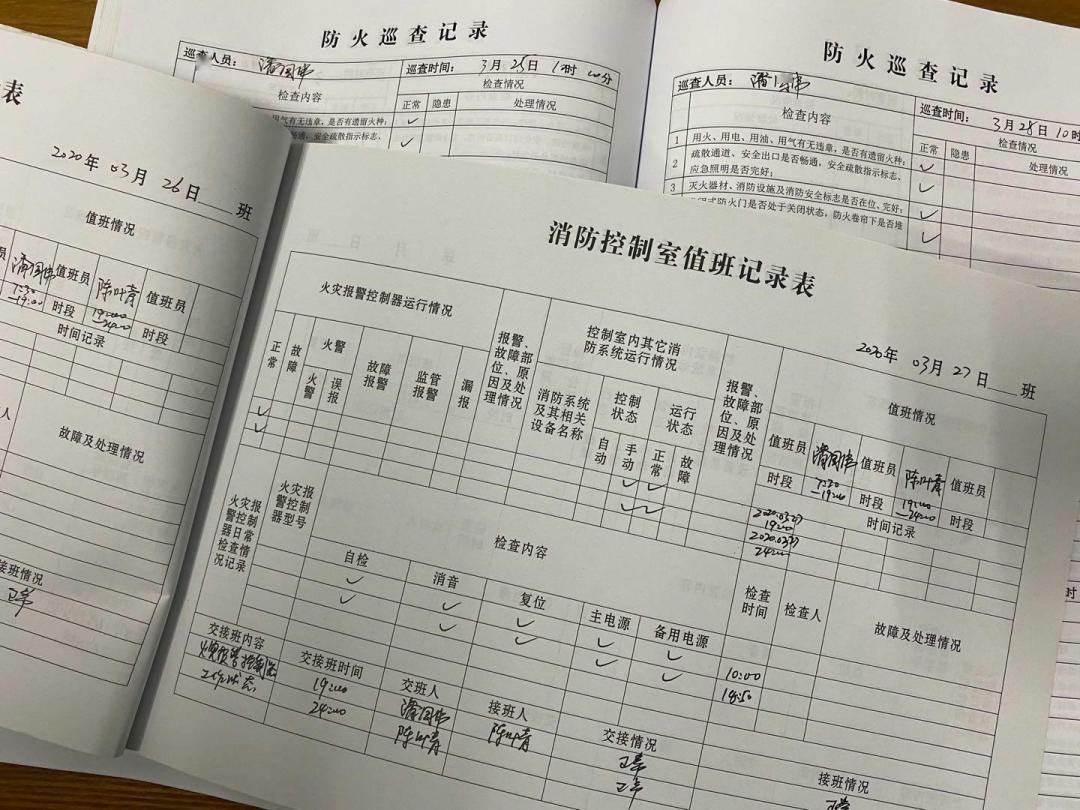 防火巡查记录
巡查人员：
巡查时间： 3月25日
检查内容
检查情况
正常 隐患 处理情况
用气有无违章，是否有遗留火种；
畅通，安全疏散指示标志、
防火巡查记录
巡查人员：
巡查时间： 3月28日10时
检查内容
检查情况
正常 隐患 处理情况
1 用火、用电、用油、用气有无违章，是否有遗留火种；
2 疏散通道、安全出口是否畅通，安全疏散指示标志、
应急照明是否完好；
3 灭火器材、消防设施及消防安全标志是否在位、完好；
防火门是否处于关闭状态，防火卷帘下是否堆
表
2020年03月26日 班
值班情况
员 潘国伟 值班员 陈叶青 值班员
7:30-19:00 时段 19:00-24:00 时段
时间记录
故障及处理情况
接班情况
正常
消防控制室值班记录表
2020年03月27日 班
火灾报警控制器运行情况
报警、故障部位、原因及处理情况
控制室内其它消防系统运行情况
报警、故障部位、原因及处理情况
值班情况
正常 故障 火警 故障报警 监管报警 漏报
火警 误报
消防系统及其相关设备名称
控制状态 运行状态
自动 手动 正常 故障
值班员 潘国伟 值班员 陈叶青 值班员
时段 7:30-19:00 时段 19:00-24:00 时段
2020.03.27 19:00
2020.03.27 24:00
时间记录
火灾报警控制器日常检查情况记录
火灾报警控制器型号
检查内容
检查时间 检查人 故障及处理情况
自检 消音 复位 主电源 备用电源
10:00
18:50
交接班内容 交接班时间 交班人 接班人 交接情况 接班情况
火灾报警控制器工作状态
19:00 潘国伟 陈叶青 正常 正常
24:00 陈叶青 正常